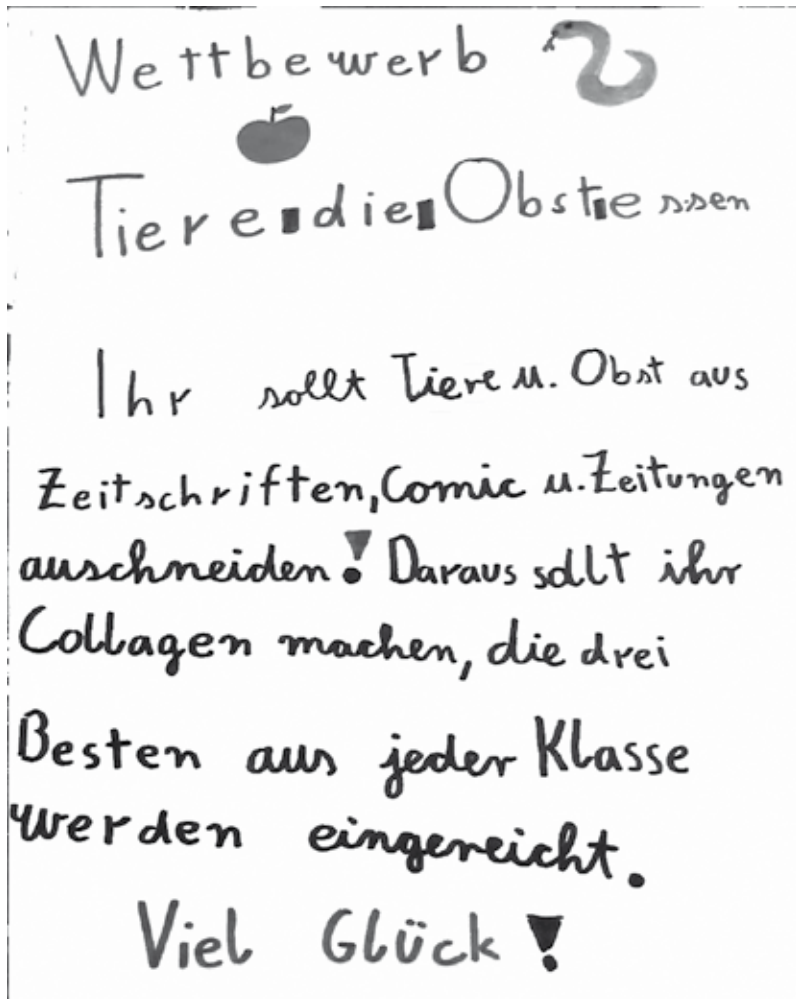 Wettbewerb
Tiere die Obst essen
Ihr sollt Tiere u. Obst aus
Zeitschriften, Comic u. Zeitungen
auschneiden! Daraus sollt ihr
Collagen machen, die drei
Besten aus jeder Klasse
werden eingereicht.
Viel Glück!